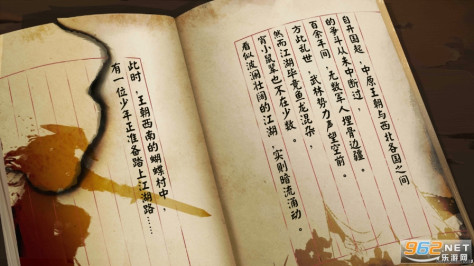 自开国起，中原王朝与西北各国之间
的争斗从未中断过，
百余年间，无数军人埋骨边疆。
方此乱世，武林势力声望空前。
然而江湖毕竟鱼龙混杂，
宵小鼠辈也不在少数。
看似波澜壮阔的江湖，实则暗流涌动。
此时，王朝西南的蝴蝶村中，
有一位少年正准备踏上江湖路……
962.NET
乐游网